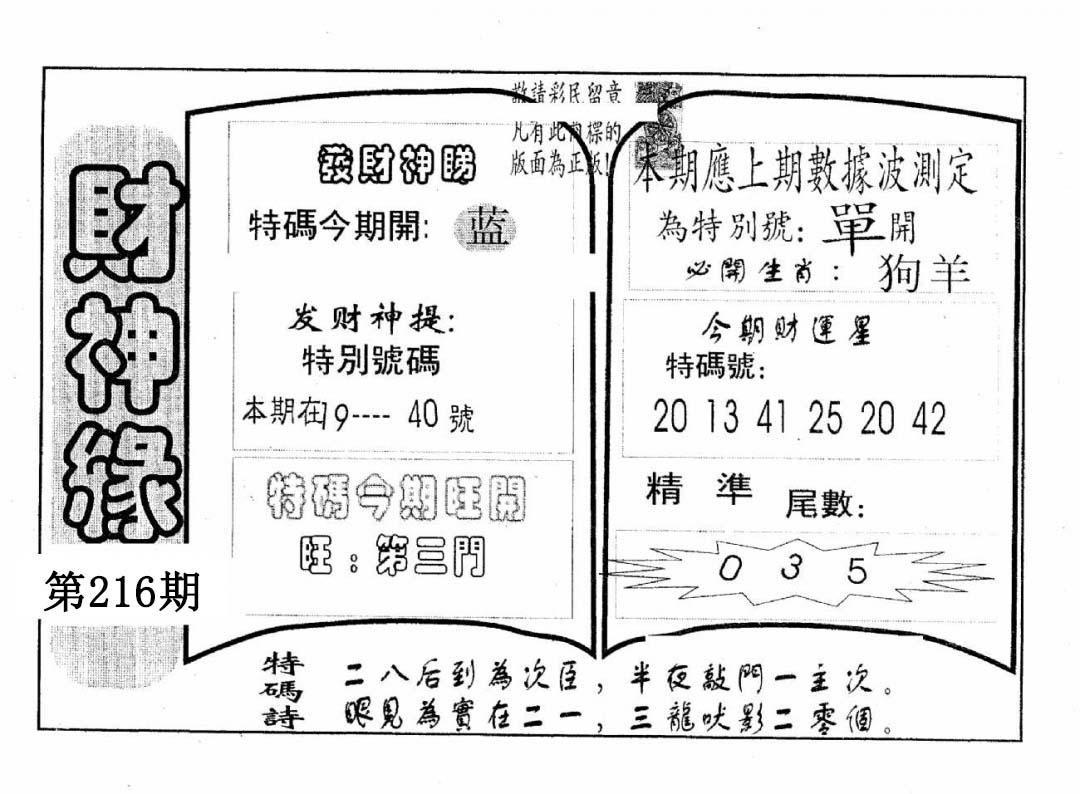 財神緣
第216期
敬請彩民留意
凡有此商標的
版面為正版!
發財神賜
特碼今期開: 蓝
发财神提:
特別號碼
本期在19---- 40 號
特碼今期旺開
旺:第三門
本期應上期數據波測定
為特別號: 單開
必開生肖: 狗羊
今期財運星
特碼號:
20 13 41 25 20 42
精準 尾數:
0 3 5
特碼詩
二八后到為次臣,半夜敲門一主次。
眼見為實在二一,三龍吠影二零個。